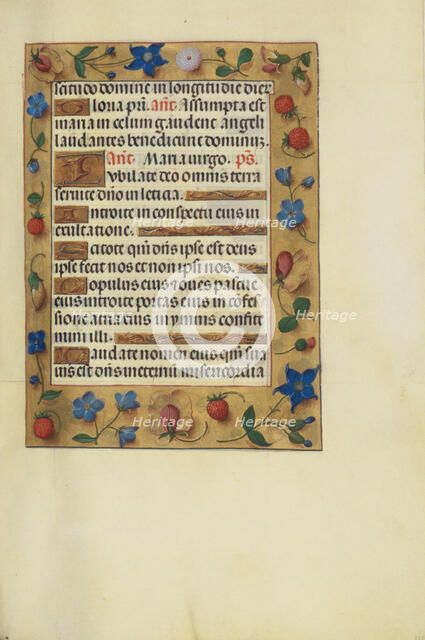 scitudo domine in longitudie dier
Gloria pr̄i. ān̄t. Assumpta est
maria in celum gaudent angeli
laudantes benedicunt dominuz.
Ān̄t. Maria uirgo. p̄s.
Iubilate deo omnis terra
seruite dn̄o in leticia.
Introite in conspectu eius in
exultatione.
Scitote qm̄ dn̄s ipse est deus
ipse fecit nos et non ipsi nos.
Populus eius et oues pascue
eius introite portas eius in cōfes
sione atria eius in ymnis confite
mini illi.
Laudate nomen eius qm̄ sua
uis est dn̄s in eternū misericordia
Heritage
Heritage
Heritage
Heritage
Heritage
Heritage
Heritage